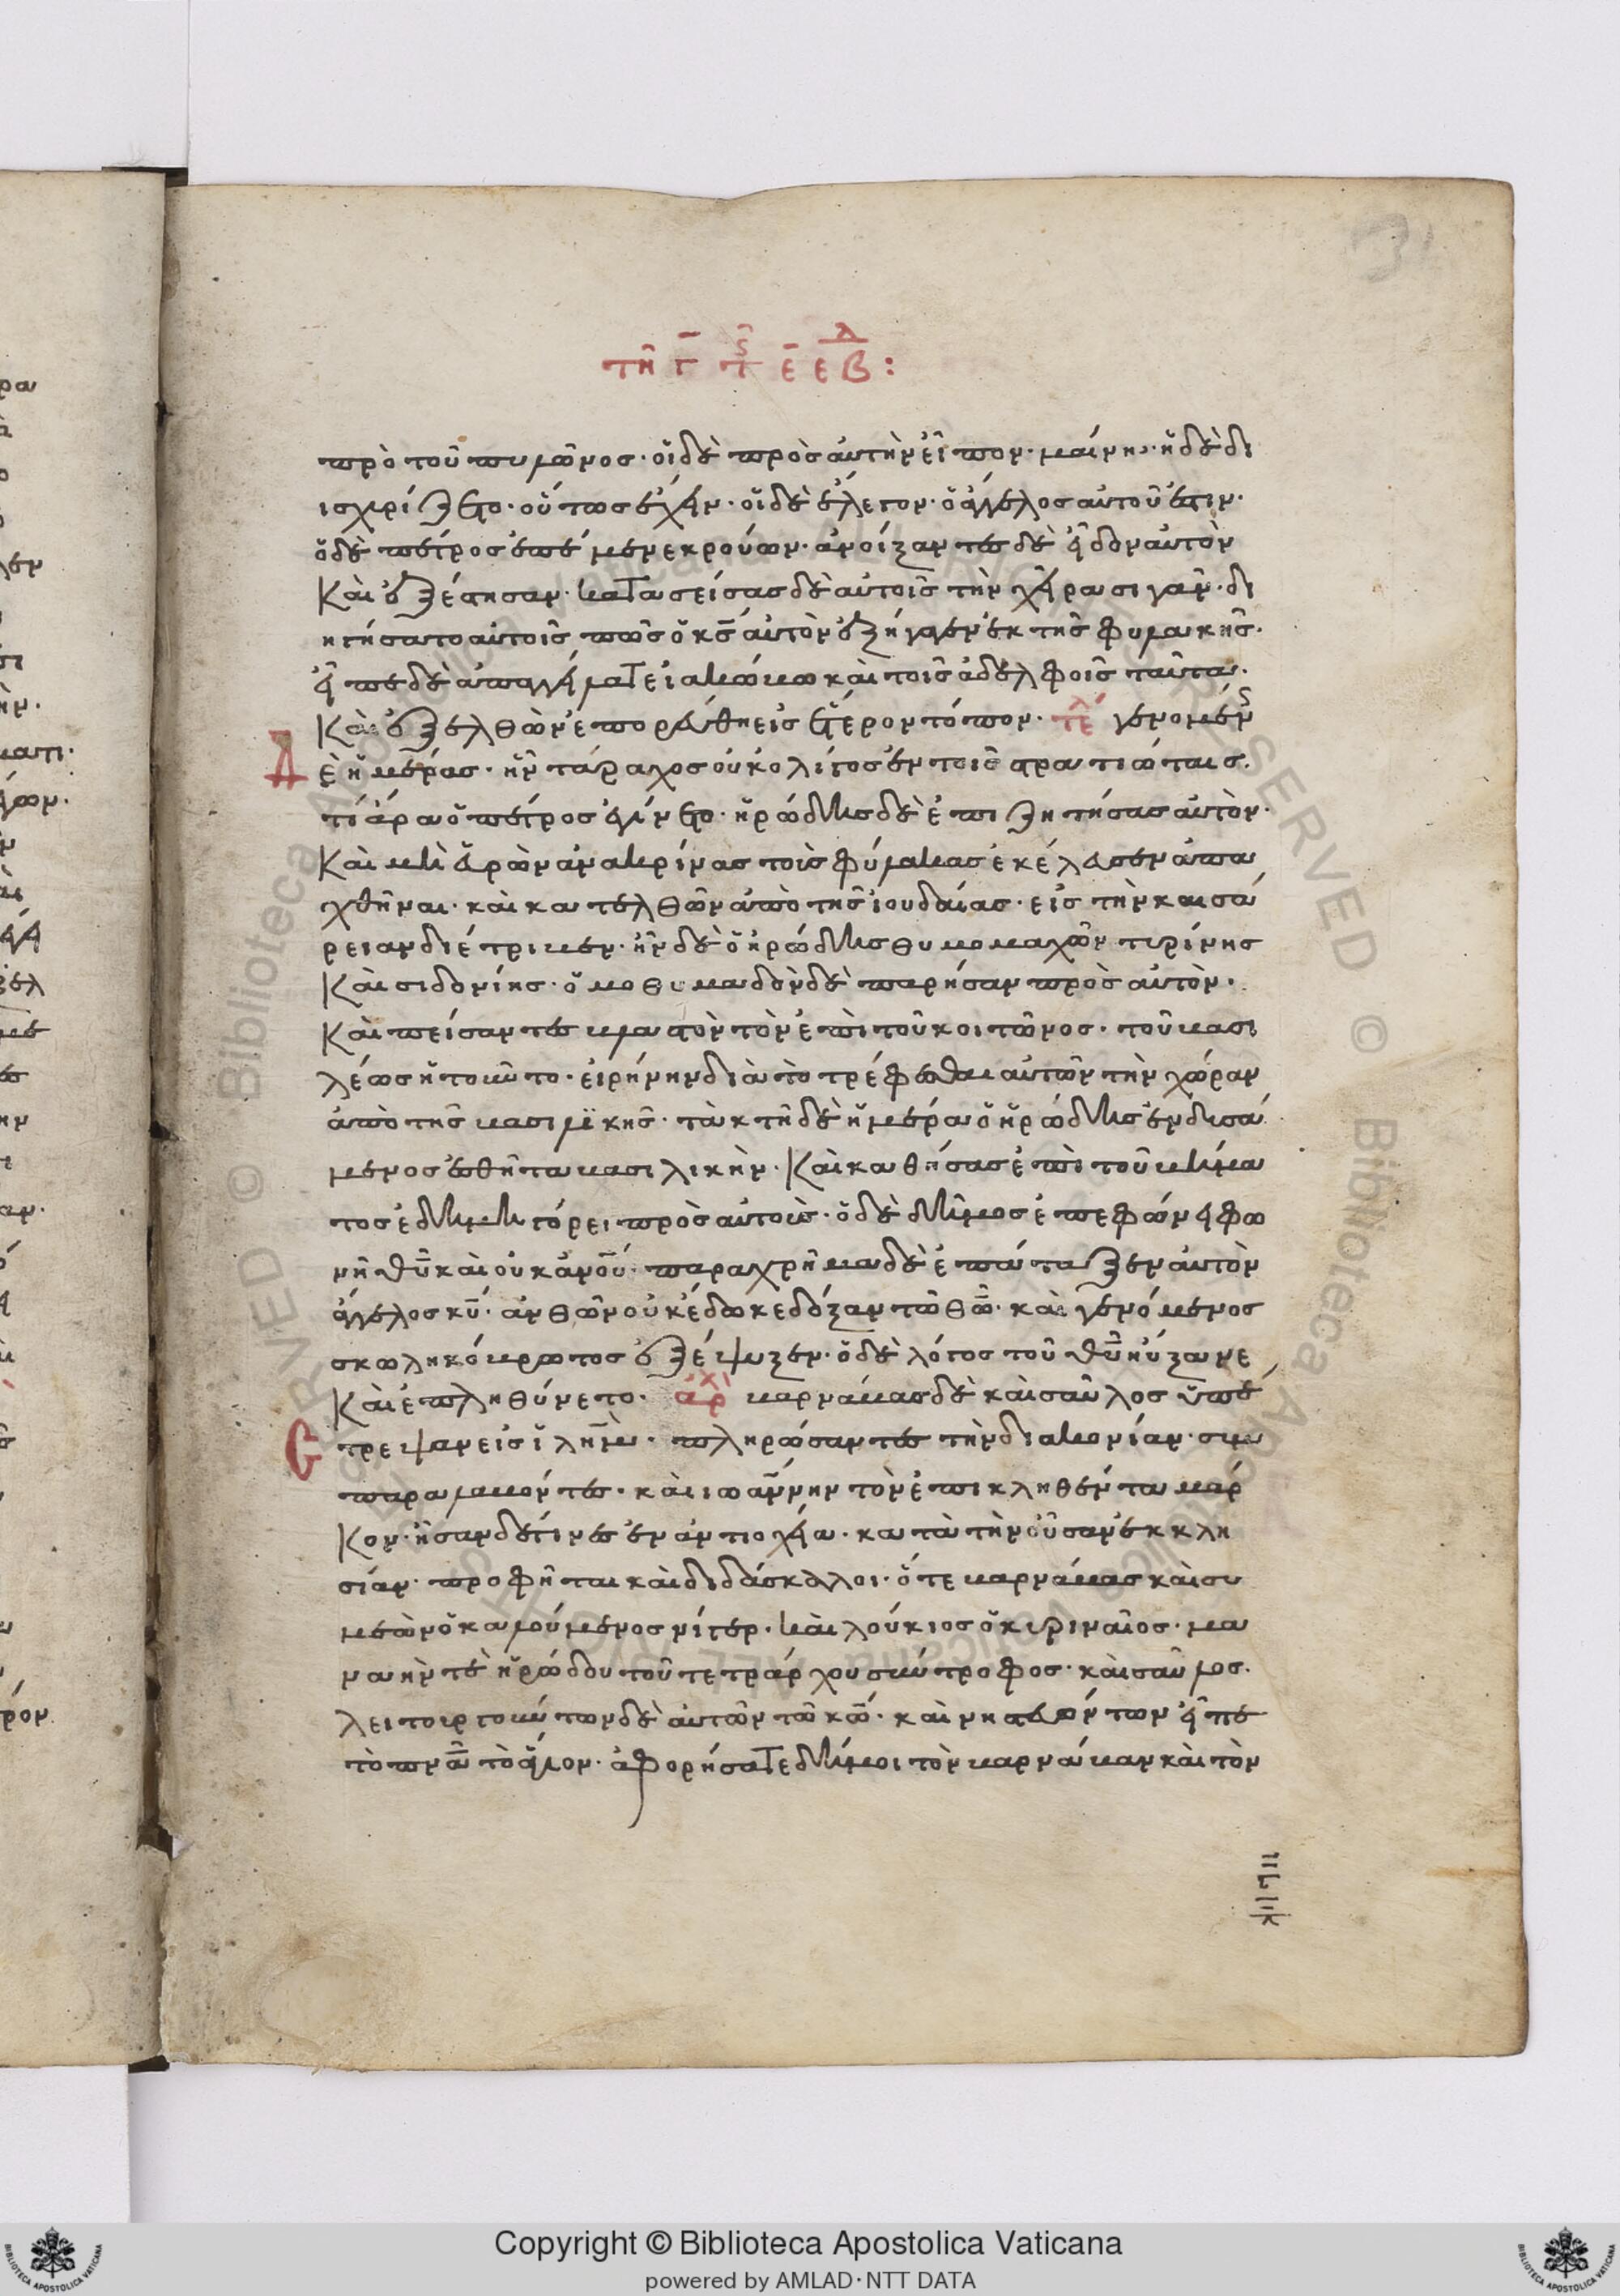 τῆ γ τ ε εβδ:
πρὸ τοῦ πυλῶνος· οἵδὲ πρὸς ἀυτὴν ἐῖπον· μαίνη· ἡδὲ δι
ισχυρίζετο· οὕτως ἐχειν· οἵδὲ ἔλεγον· ὅ ἄγγελος αὐτοῦ ἐστιν·
ὅδὲ πέτρος ἐπέμενε κρούων· ἀνοίξαντες δὲ εἶδον ἀυτὸν
Καὶ ἐξέστησαν· κατασείσας δὲ αὐτοῖς τὴν χεῖρα σιγαν· δι
ηγήσατο αὐτοῖς πῶς ὅ κς αὐτὸν ἐξήγαγεν ἐκ τῆς φυλακῆς·
εἶπε δὲ ἀπαγγείλατε ἰακώβω καὶ τοῖς ἀδελφοῖς ταῦτα·
Καὶ ἐξελθὼν ἐπορεύθη εἰς ἕτερον τόπον· τέλ γενομένης
δὲ ἡμέρας· ἦν τάραχος οὐκ ολίγος ἐν τοῖς στρατιώταις.
τί ἄρα ὅ πέτρος ἐγένετο· ἡρώδης δὲ ἐπιζητήσας αὐτὸν·
Καὶ μὴ εὑρὼν ἀνακρίνας τοὺς φύλακας ἐκέλευσεν ἀπα
χθῆναι· καὶ κατελθῶν ἀπὸ τῆς ἰουδαίας· εἰς τὴν καισά
ρειαν διέτριβεν· ἦν δὲ ὅ ἡρώδης θυμομαχῶν τυρίνης
Καὶ σιδονίης· ὅμοθυμαδὸν δὲ παρήσαν πρὸς αὐτὸν·
Καὶ πείσαντες βλαστὸν τὸν ἐπὶ τοῦ κοιτῶνος· τοῦ βασι
λέως ἡτοιντο· εἰρήνην διὰ τὸ τρέφεσθαι αὐτῶν τὴν χώραν
ἀπὸ τῆς βασιλϊκῆς· τὰκτῆ δὲ ἡμέρα ὅ ἡρώδης ἐνδυσά
μενος ἐσθῆτα βασιλικὴν· Καὶ καθήσας ἐπὶ τοῦ βήμα
τος ἐδημηγόρει πρὸς αὐτοὺς· ὅδὲ δῆμος ἐπεφώνει φω
νῆ θῦ καὶ οὐκ ἀνοῦ· παραχρῆμα δὲ ἐπάταξεν ἀυτὸν
ἄγγελος κῦ· ἀνθῶν οὐκ ἔδωκε δόξαν τῶ θῶ· καὶ γενόμενος
σκωληκόβρωτος ἐξέψυξεν· ὅδὲ λόγος τοῦ θῦ ηὔξανε
Καὶ ἐπληθύνετο· ἀρχ βαρνάβας δὲ καὶ σαῦλος ὑπέ
στρεψαν εἰς ἱλημ· πληρώσαντες τὴν διακονίαν· συμ
παραλαβόντες· καὶ ιωάννην τὸν ἐπικληθέντα μάρ
Κον· ἦσαν δέ τινες ἐν ἀντιοχεία· κατὰ τὴν οὖσαν ἐκκλη
σίαν· προφῆται καὶ διδάσκαλοι· ὅτε βαρνάβας καὶ συ
μεὼν ὅ καλούμενος νίγερ· καὶ λούκιος ὅ κυριναῖος· μα
ναήν τε ἡρώδου τοῦ τετράρχου σύντροφος· καὶ σαῦλος.
λειτουργούντων δὲ αὐτῶν τῶ κῶ· καὶ νηστευόντων εἶπε
τὸ πνᾶ τὸ ἅγιον· ἀφορήσατε δή μοι τὸν βαρνάβαν καὶ τὸν
Copyright © Biblioteca Apostolica Vaticana
powered by AMLAD·NTT DATA